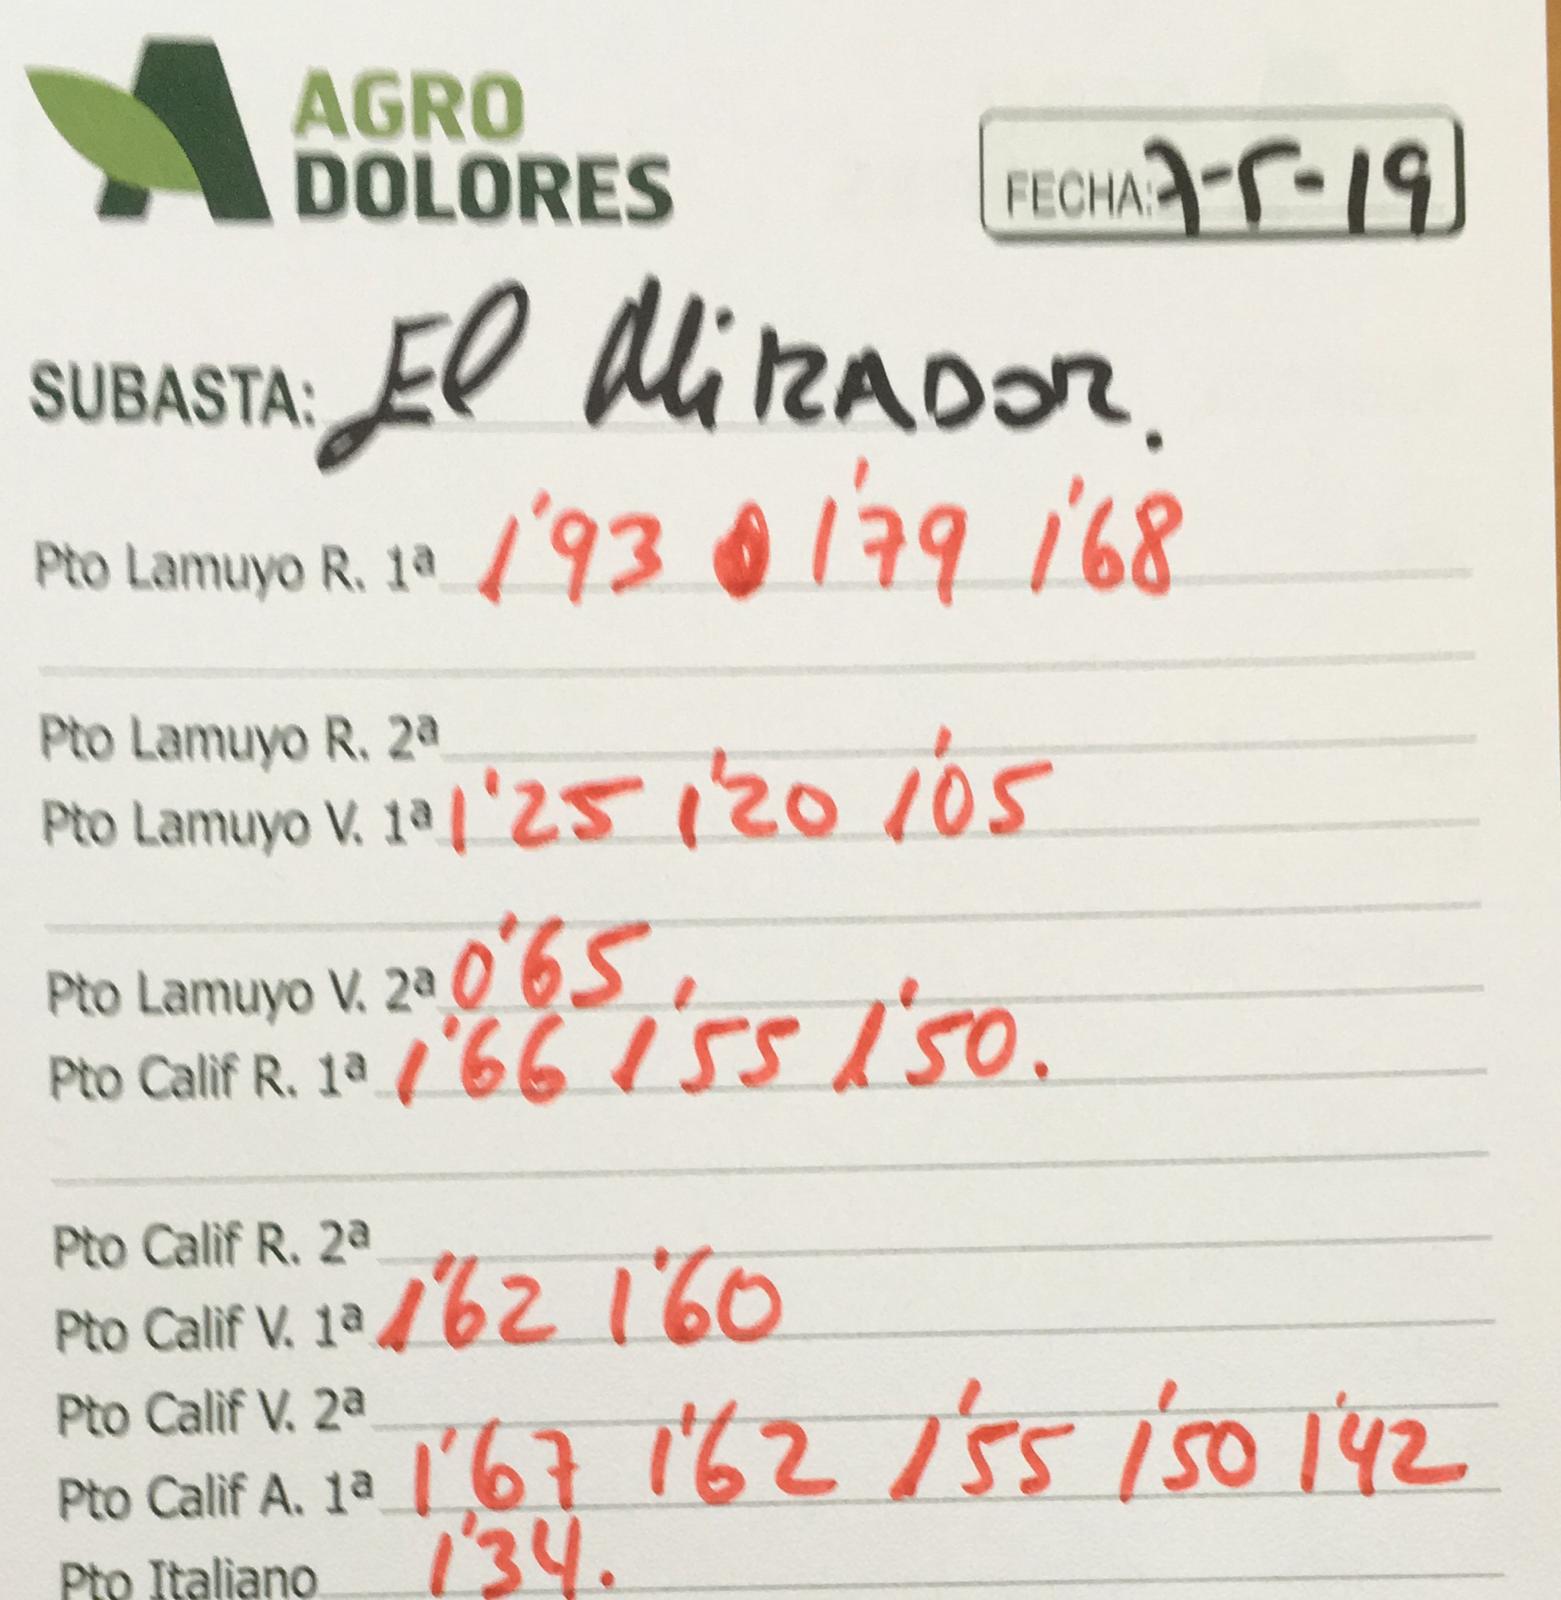 AGRO
DOLORES
FECHA: 7-5-19
SUBASTA: El Mirador.
Pto Lamuyo R. 1ª 1'93 1'79 1'68
Pto Lamuyo R. 2ª
Pto Lamuyo V. 1ª 1'25 1'20 1'05
Pto Lamuyo V. 2ª 0'65
Pto Calif R. 1ª 1'66 1'55 1'50.
Pto Calif R. 2ª
Pto Calif V. 1ª 1'62 1'60
Pto Calif V. 2ª
Pto Calif A. 1ª 1'67 1'62 1'55 1'50 1'42
Pto Italiano 1'34.